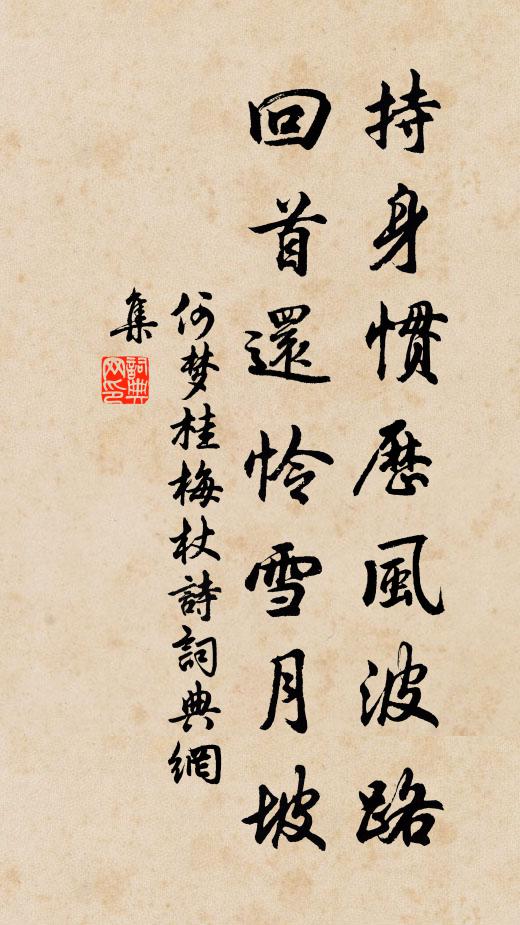 持身慣歷風波路
回首還怜雪月坡
何梦桂梅杖詩詞典網
集
詞典
网印